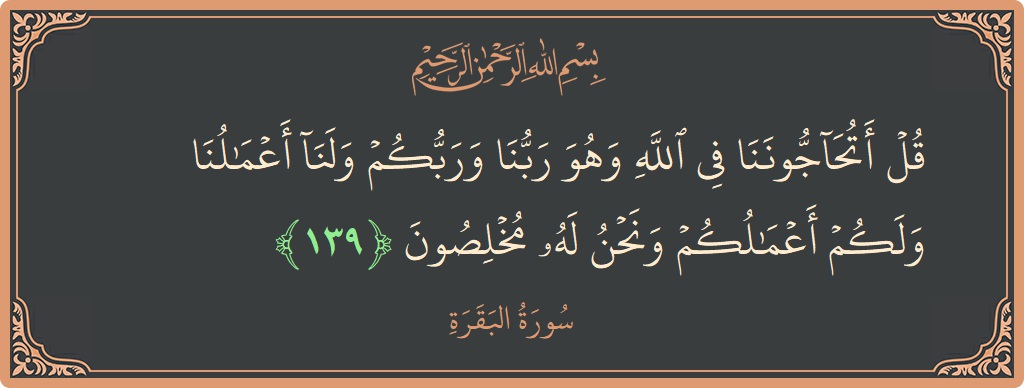 بِسْمِ اللَّهِ الرَّحْمَٰنِ الرَّحِيمِ
قُلۡ أَتُحَآجُّونَنَا فِي ٱللَّهِ وَهُوَ رَبُّنَا وَرَبُّكُمۡ وَلَنَآ أَعۡمَٰلُنَا
وَلَكُمۡ أَعۡمَٰلُكُمۡ وَنَحۡنُ لَهُۥ مُخۡلِصُونَ ﴿١٣٩﴾
سُورَةُ البَقَرَةِ